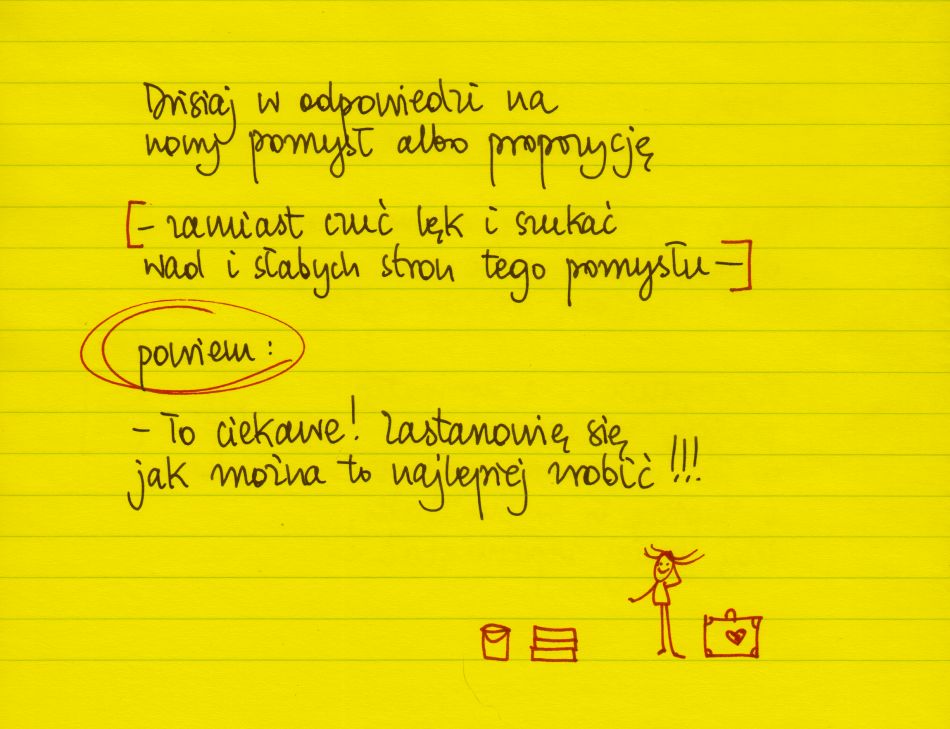 Dzisiaj w odpowiedzi na
nowy pomysł albo propozycję
[– zamiast czuć lęk i szukać
wad i słabych stron tego pomysłu –]
powiem:
– To ciekawe! Zastanowię się,
jak można to najlepiej zrobić!!!